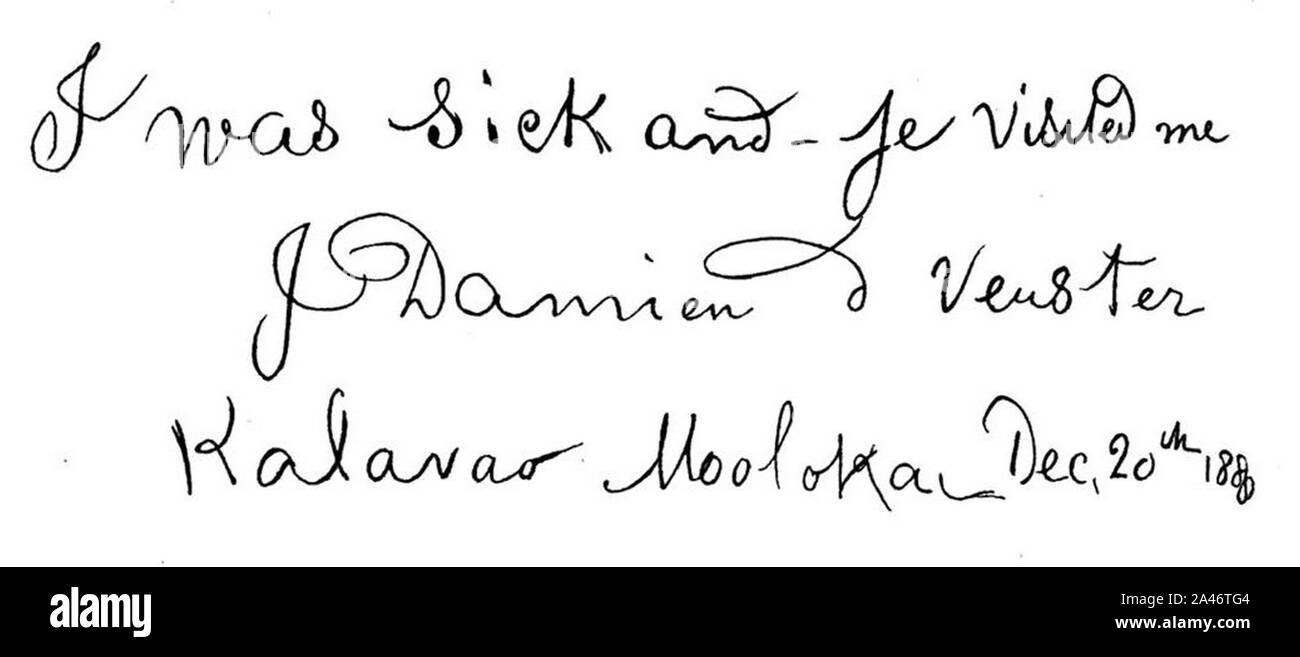 I was sick and - ye visited me
J Damien d Veuster
Kalavao Molokai Dec, 20th 188
alamy
Image ID: 2A46TG4
www.alamy.com